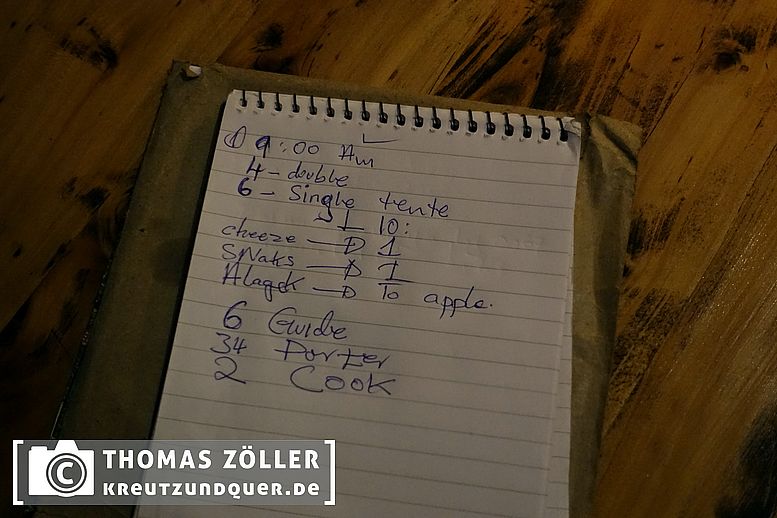 ① 9:00 Am
4 - double
6 - Single tente
10:
cheeze → 1
SNaks → 1
Alagek → To apple.
6 Guide
34 Porter
2 Cook
© THOMAS ZÖLLER
KREUTZUNDQUER.DE